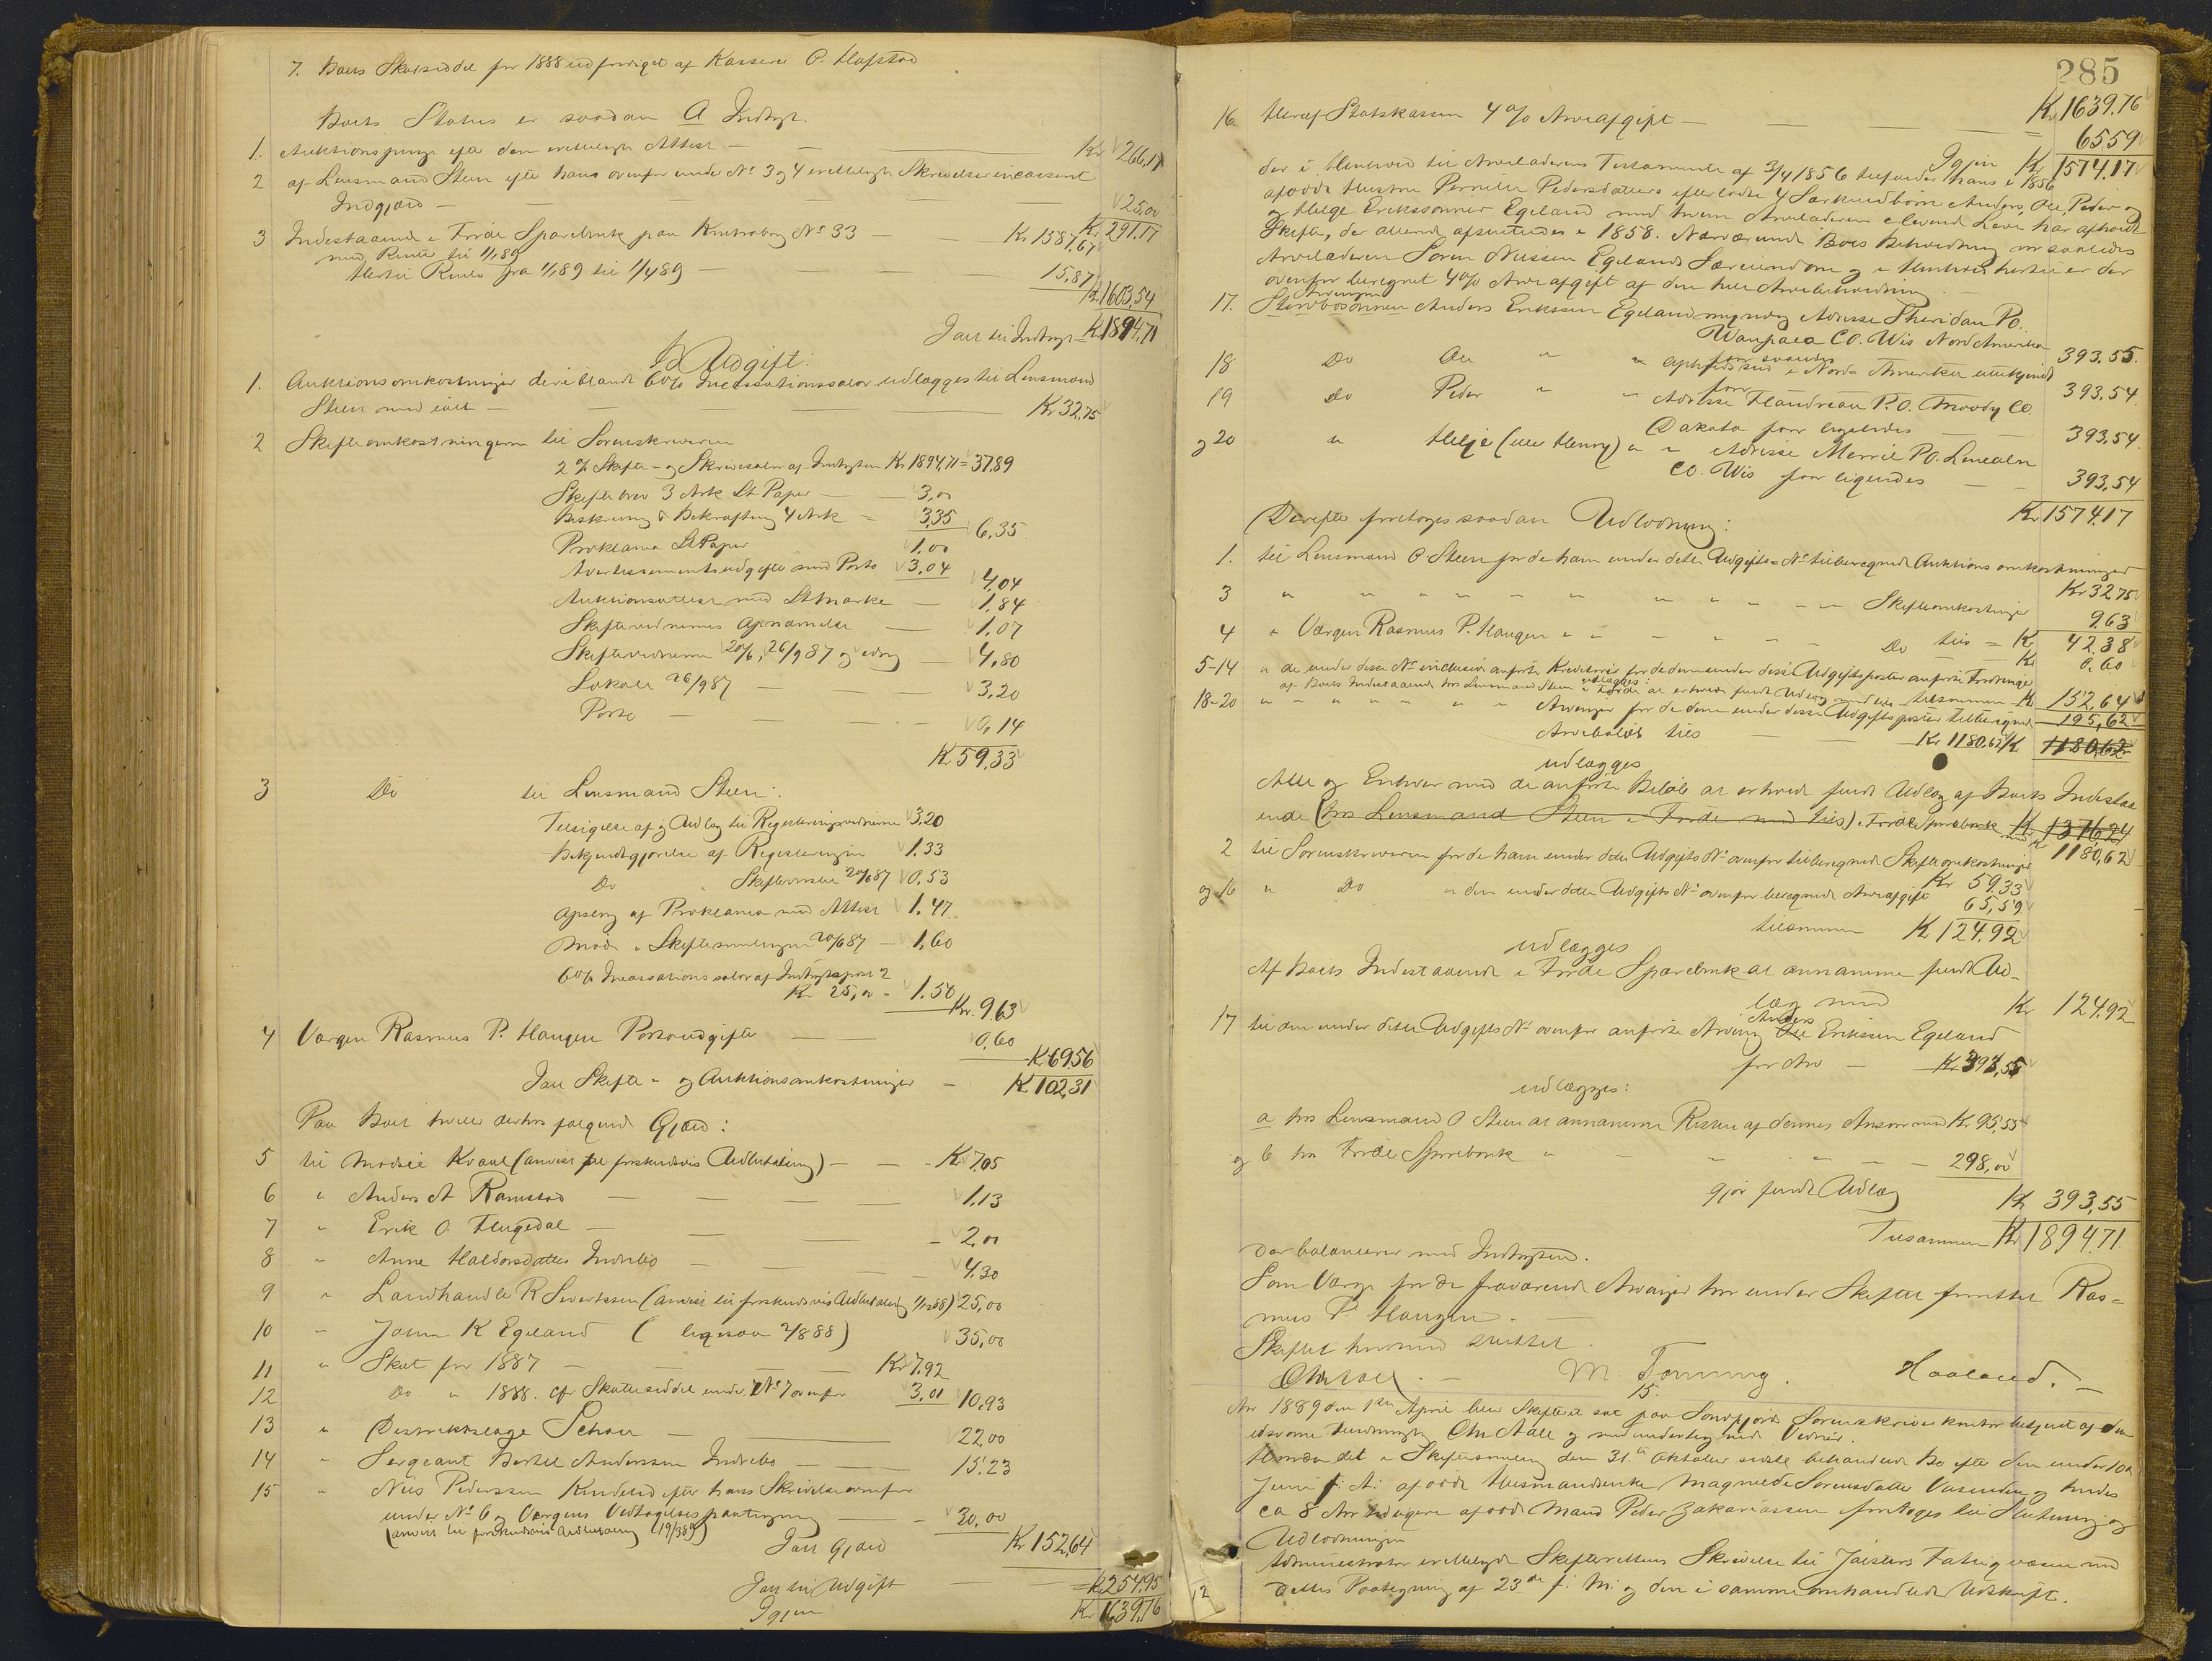 7. Boets Skatseddel for 1888 udfærdiget af Kasserer O. Hafstad
Boets Status er saadan A Indtægt.
1. Auktionspenge efter den vedlagte Attest — Kr 266,17
2 af Lensmand Steen efter hans ovenfor under No 3 og 4 Skrivelser incasseret
Indgjæld — 25,00
Kr. 291.17
3 Indestaaende i Førde Sparebank paa Kontrabog No 33 — Kr. 1587,67
med Renter til 1/1 89
Hertil Renter fra 1/1 89 til 1/4 89 — 15,87
Kr. 1603,54
Ialt til Indtægt = Kr 1894,71
B Udgift:
1. Auktionsomkostninger deriblandt 6% Incassationssalær udlægges til Lensmand
Steen med ialt — Kr 32,75
2 Skifteomkostningerne til Sorenskriveren
2% Skifte- og Skrivesalær af Indtægten Kr 1894,71 = 37,89
Skiftebrev 3 Ark St Papir — 3,00
Beskrivning & Bekræftning 4 Ark — 3,35 6,35
Proklama St Papir 1.00
Avertissementsudgifter med Porto 3,04 4,04
Auktionsattest med St Mærke — 1,84
Skiftevidners Opnævnelse — 1,07
Skiftevidnerne 20/6, 26/9 87 og idag — 4,80
Lokale 26/9 87 — 3,20
Porto — 0,14
Kr 59,33
3 Do til Lensmand Steen:
Tilsigelse af og Udlæg til Registreringsvidnerne 3,20
Bekjendtgjørelse af Registreringen 1.33
Do " Skiftesamling 20/6 87 0,53
Opslag af Proklama med Attest 1.47
Møde i Skiftesamlingen 20/6 87 — 1,60
6% Incassationssalær af Indtægtspost 2
Kr 25,00 - 1.50 Kr. 9.63
4 Værgen Rasmus P. Haugen Portoudgifter — 0,60
Kr 69,56
Ialt Skifte- og Auktionsomkostninger — Kr 102,31
Paa Boet hviler derhos følgende Gjæld:
5 til Mads E Kvaal (anvist til forskudsvis Udbetaling) — Kr 7,05
6 " Anders A Ramstad — 1.13
7 " Erik O. Flugedal — 2,00
8 " Anne Haldorsdatter Indrebø — 4,30
9 " Landhandler R Sivertssen (anvist til forskudsvis Udbetaling 1/12 88) 25,00
10 " Johan K Egeland ( ligesaa 2/8 88) 35,00
11 " Skat for 1887 — Kr 7,92
12 Do " 1888. cfr Skatteseddel under No 7 ovenfor 3,01 10,93
13 " Distriktslæge Schou — 22,00
14 " Sergeant Bertel Anderssen Indrebø — 15,23
15 " Nils Pederssen efter hans Skrivelse ovenfor
under No 6 og Værgens Vedtagelsespaategning — 30,00
(anvist til forskudsvis Udbetaling 19/3 89)
Ialt Gjæld Kr 152,64
Ialt til Udgift — Kr 254,95
Igjen Kr 1639,76
285
Kr 1639.76
16 Heraf Statskassen 4% Arveafgift — 65,59
Igjen Kr 1574.17
der i Henhold til Arveladerens Testamente af 3/4 1856 tilfalder hans i 1856
afdøde Hustru Pernille Pedersdatters efterladte 4 Særkuldbørn Anders, Ole, Peder og
og Helge Erikssønner Egeland med hvem Arveladeren i levende Live har afholdt
Skifte, der allerede afsluttedes i 1858. Nærværende Boes Beholdning er saaledes
Arveladeren Søren Nilssen Egelands Særeiendom og i Henhold hertil er der
ovenfor beregnet 4% Arveafgift af den hele Arvebeholdning
Arvingen
17. Stervbosønnen Anders Erikssen Egeland myndig Adresse Sheridan P.O.
Waupaca CO. Wis Nord Amerika
faar saaledes 393.55.
18 Do Ole " " opholdssted i Nord Amerika ubekjendt
faar 393,54
19 Do Peder " " Adresse Flandreau P.O. Moody CO.
Dakota faar ligeledes — 393,54
og 20 " Helge (eller Henry) " " Adresse Merril PO. Lincoln
CO. Wis faar ligeledes — 393,54
Kr 1574.17
Derefter foretoges saadan Udlodning:
1. til Lensmand O. Steen for de ham under dette Udgifts-No tilberegnede Auktionsomkostninger
Kr 32,75
3 " " " " " " " " " Skifteomkostninger 9.63
tils = Kr 42.38
4 " Værgen Rasmus P. Haugen " " " " " Do Kr 0,60
5-14 " de under disse No inclusive anførte Kreditorer for de dem under disse Udgiftsposter anførte Fordringer
tilsammen Kr 152,64
195,62
18-20 " " " " " Arvinger for de dem under disse Udgiftsposter tilberegnede
Arvebeløb tils — Kr 1180.62 Kr 1180,62
udlægges
Alle og Enhver med de anførte Beløb at erholde fuldt Udlæg af Boets Indestaa
ende (hos Lensmand Steen i Førde med tils) i Førde Sparebank Kr 1376,24
med Kr 1180,62
2 til Sorenskriveren for de ham under dette Udgifts No ovenfor tilberegnede Skifteomkostninger
Kr 59.33
og 16 " Do " den under dette Udgifts No ovenfor beregnede Arveafgift 65,59
tilsammen Kr 124,92
udlægges
Af Boets Indestaaende i Førde Sparebank at annamme fuldt Ud-
læg med Kr 124,92
17 til den under dette Udgifts No ovenfor anførte Arving Ole Anders Erikssen Egeland
for Arv — Kr 393,55
udlægges:
a hos Lensmand O Steen at annamme Resten af dennes Ansvar med Kr. 95,55
og b hos Førde Sparebank " — 298,00
gjør fuldt Udlæg Kr 393,55
Tilsammen Kr 1894.71
Der balancerer med Indtægten.
Som Værge for de fraværende Arvinger har under Skiftet fungeret Ras-
mus P. Haugen. —
Skiftet hermed sluttet.
Chr Aall. — M. Tonning. Haaland. —
15.
Aar 1889 den 1ste April blev Skifteret sat paa Søndfjords Sorenskriverkontor betjent af den
edsvorne Fuldmægtig Chr Aall og medundertegnede Vidner.
Hvorda det i Skiftesamling den 31te Oktober sidste behandlede Bo efter den under 10de
Juni f. A. afdøde Husmandsenke Magnilde Sørensdatter og hendes
ca 8 Aar tidligere afdøde Mand Peder Zakariassen foretoges til Slutning og
Udlodning
Administrator vedlagde Skifterettens Skrivelse til Jølsters Fattigvæsen med
dettes Paategning af 23de f. M. og den i samme omhandlede Udskrift.
12